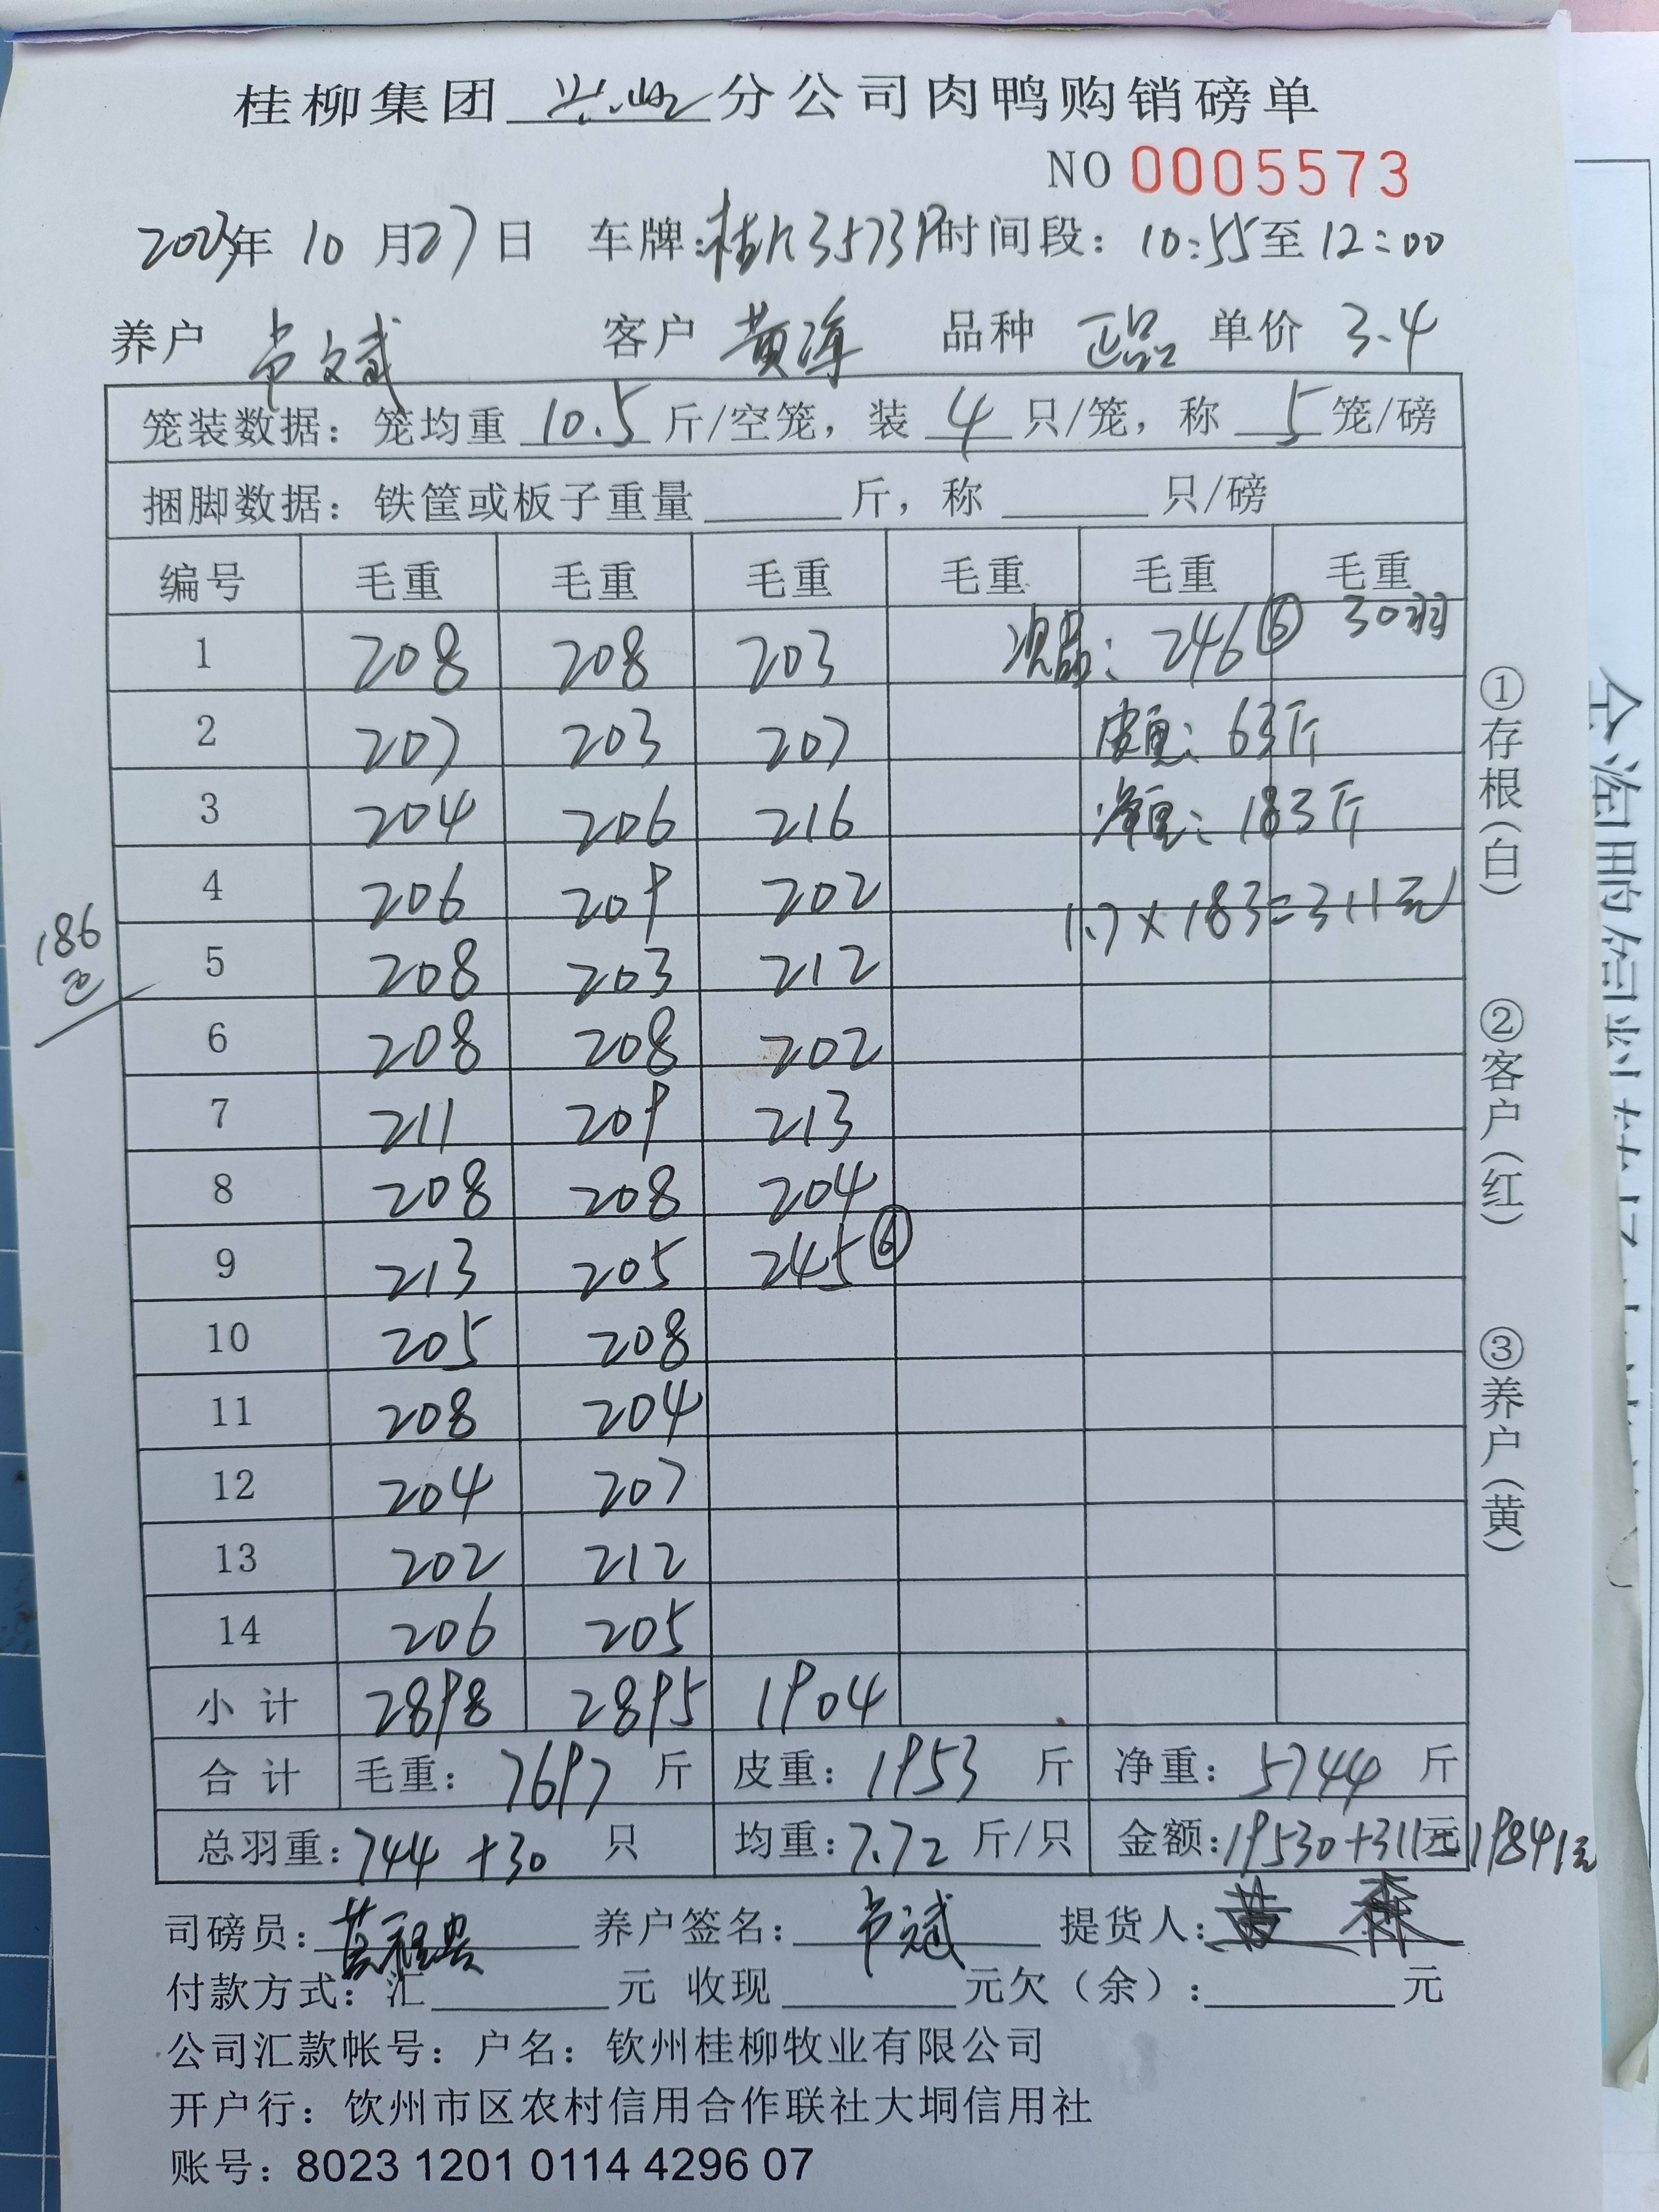 桂柳集团 分公司肉鸭购销磅单
NO 0005573
2023年 10 月27日 车牌:桂K3573P时间段: 10:55至12:00
养户 卢文斌 客户 黄海 品种 正品 单价 3.4
笼装数据: 笼均重 10.5 斤/空笼, 装 4 只/笼, 称 5 笼/磅
捆脚数据: 铁筐或板子重量 斤, 称 只/磅
编号 毛重 毛重 毛重 毛重 毛重 毛重
1 208 208 203 次品: 246⑥ 30羽
2 207 203 207 皮重: 63斤
3 204 206 216 净重: 183斤
4 206 209 202 1.7×183=311元
186
5 208 203 212
6 208 208 202
7 211 209 213
8 208 208 204
9 213 205 245⑥
10 205 208
11 208 204
12 204 207
13 202 212
14 206 205
小计 2898 2895 1904
合计 毛重: 7697 斤 皮重: 1953 斤 净重: 5744 斤
总羽重: 744 +30 只 均重: 7.72 斤/只 金额: 19530+311元 19841元
司磅员: 养户签名: 卢文斌 提货人: 黄 森
付款方式: 汇 元 收现 元欠(余): 元
公司汇款帐号: 户名: 钦州桂柳牧业有限公司
开户行: 钦州市区农村信用合作联社大垌信用社
账号: 8023 1201 0114 4296 07
①存根(白) ②客户(红) ③养户(黄)